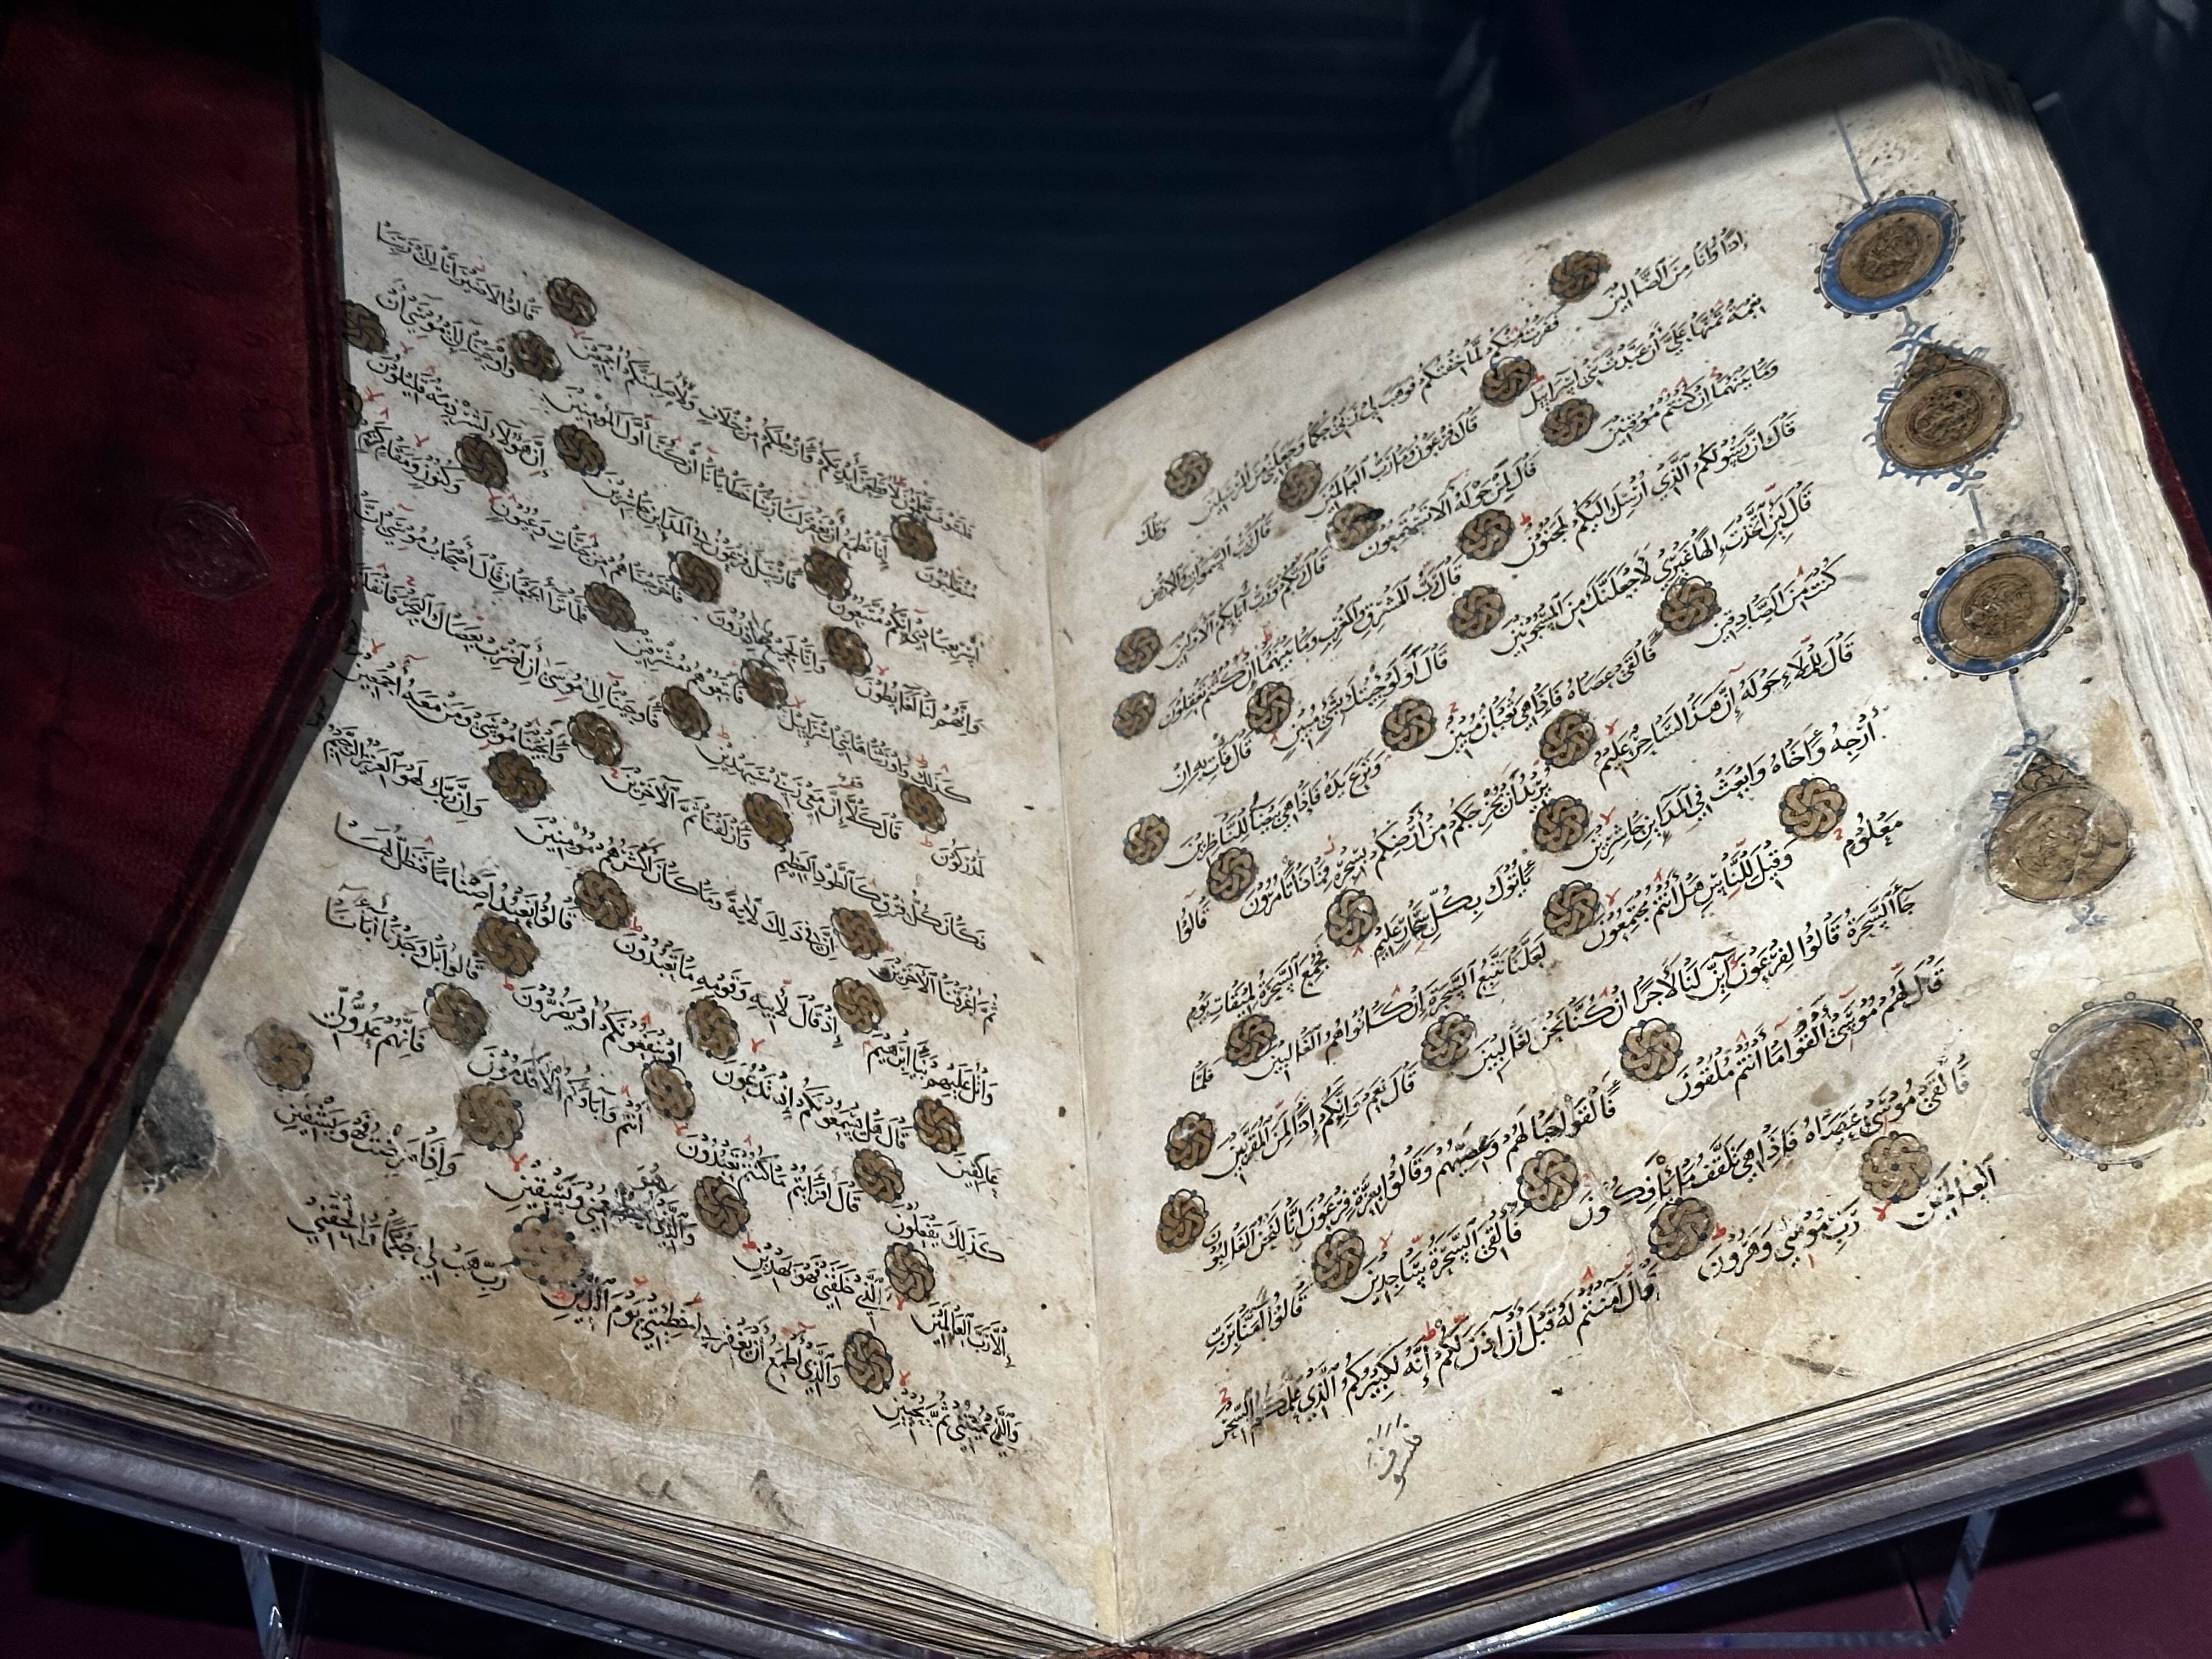 إذا وأنا من الضالين ففررت منكم لما خفتكم فوهب لي ربي حكما وجعلني من المرسلين وتلك
نعمة تمنها علي أن عبدت بني إسرائيل قال فرعون وما رب العالمين قال رب السموات والأرض
وما بينهما إن كنتم موقنين قال لمن حوله ألا تستمعون قال ربكم ورب آبائكم الأولين
قال إن رسولكم الذي أرسل إليكم لمجنون قال رب المشرق والمغرب وما بينهما إن كنتم تعقلون
قال لئن اتخذت إلها غيري لأجعلنك من المسجونين قال أولو جئتك بشيء مبين قال فأت به إن
كنت من الصادقين فألقى عصاه فإذا هي ثعبان مبين ونزع يده فإذا هي بيضاء للناظرين
قال للملأ حوله إن هذا لساحر عليم يريد أن يخرجكم من أرضكم بسحره فماذا تأمرون قالوا
أرجه وأخاه وابعث في المدائن حاشرين يأتوك بكل سحار عليم فجمع السحرة لميقات يوم
معلوم وقيل للناس هل أنتم مجتمعون لعلنا نتبع السحرة إن كانوا هم الغالبين فلما
جاء السحرة قالوا لفرعون أئن لنا لأجرا إن كنا نحن الغالبين قال نعم وإنكم إذا لمن المقربين
قال لهم موسى ألقوا ما أنتم ملقون فألقوا حبالهم وعصيهم وقالوا بعزة فرعون إنا لنحن الغالبون
فألقى موسى عصاه فإذا هي تلقف ما يأفكون فألقي السحرة ساجدين قالوا آمنا برب
العالمين رب موسى وهرون قال آمنتم له قبل أن آذن لكم إنه لكبيركم الذي علمكم السحر
فلسوف
فلسوف تعلمون لأقطعن أيديكم وأرجلكم من خلاف ولأصلبنكم أجمعين قالوا لا ضير إنا إلى ربنا
منقلبون إنا نطمع أن يغفر لنا ربنا خطايانا أن كنا أول المؤمنين وأوحينا إلى موسى أن
أسر بعبادي إنكم متبعون فأرسل فرعون في المدائن حاشرين إن هؤلاء لشرذمة قليلون
وإنهم لنا لغائظون وإنا لجميع حاذرون فأخرجناهم من جنات وعيون وكنوز ومقام كريم
كذلك وأورثناها بني إسرائيل فأتبعوهم مشرقين فلما تراءا الجمعان قال أصحاب موسى إنا
لمدركون قال كلا إن معي ربي سيهدين فأوحينا إلى موسى أن اضرب بعصاك البحر فانفلق
فكان كل فرق كالطود العظيم وأزلفنا ثم الآخرين وأنجينا موسى ومن معه أجمعين
ثم أغرقنا الآخرين إن في ذلك لآية وما كان أكثرهم مؤمنين وإن ربك لهو العزيز الرحيم
واتل عليهم نبأ إبرهيم إذ قال لأبيه وقومه ما تعبدون قالوا نعبد أصناما فنظل لها
عاكفين قال هل يسمعونكم إذ تدعون أو ينفعونكم أو يضرون قالوا بل وجدنا آباءنا
كذلك يفعلون قال أفرأيتم ما كنتم تعبدون أنتم وآباؤكم الأقدمون فإنهم عدو لي
إلا رب العالمين الذي خلقني فهو يهدين والذي هو يطعمني ويسقين وإذا مرضت فهو يشفين
والذي يميتني ثم يحيين والذي أطمع أن يغفر لي خطيئتي يوم الدين رب هب لي حكما وألحقني